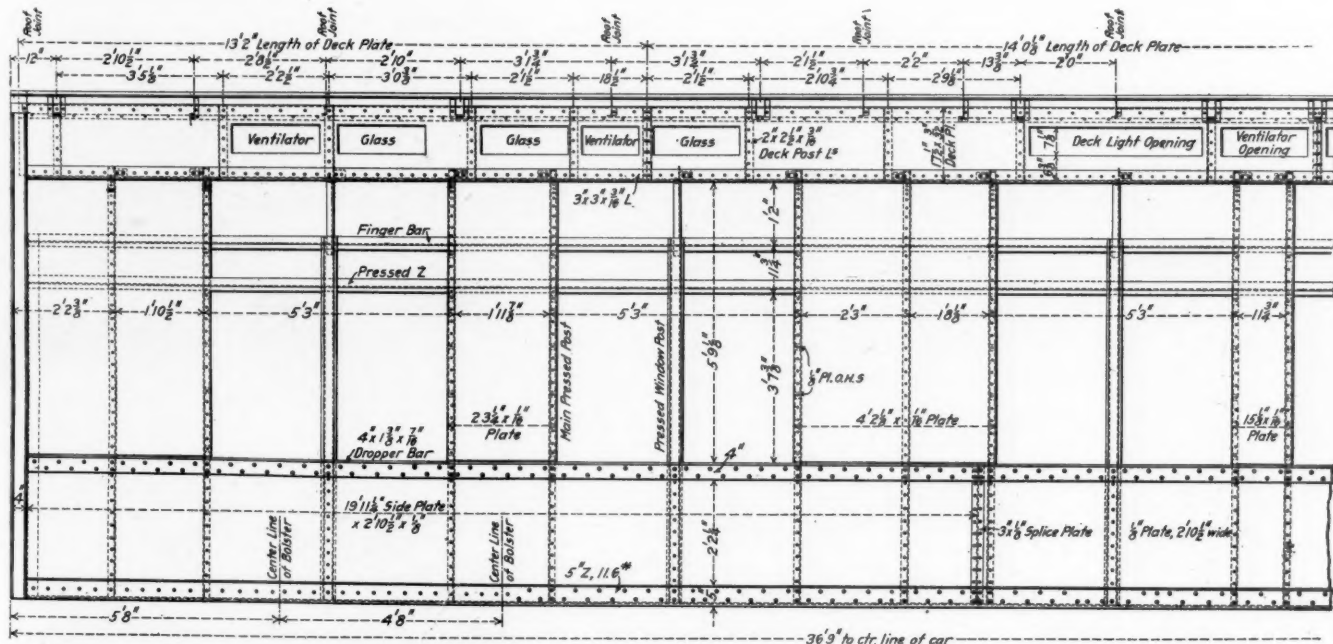 Roof Joint
Roof Joint
Roof Joint
Roof Joint
Roof Joint
13'2" Length of Deck Plate
14'0⅛" Length of Deck Plate
12"
2'10½"
2'8½"
2'10"
3'1¾"
3'1¾"
2'1½"
2'2"
13⅜"
2'0"
3'5⅛"
2'2½"
3'0⅜"
2'1½"
18½"
2'1½"
2'10¾"
2'9⅛"
Ventilator
Glass
Glass
Ventilator
Glass
2"x2½"x3/16"
Deck Post Ls
Deck Pl.
6¾"
7⅛"
Deck Light Opening
Ventilator Opening
3"x3"x3/16" L
1'2"
Finger Bar
11¾"
Pressed Z
2'2⅜"
1'10½"
5'3"
1'11⅞"
5'3"
2'3"
1'8⅛"
5'3"
11¾"
Main Pressed Post
Pressed Window Post
5'9⅛"
3'7⅜"
⅛" Pl. O.H.S
23¼"x1/16"
Plate
4'2⅛"x1/16" Plate
15⅛"x1/16"
Plate
4"x1⅜"x7/16"
Dropper Bar
4"
4"
19'11¼" Side Plate
x 2'10½"x⅛"
2'2¼"
3"x⅛" Splice Plate
⅛" Plate, 2'10½" wide
Center Line of Bolster
Center Line of Bolster
5" Z, 11.6#
5"
5'8"
4'8"
36'9" to ctr. line of car